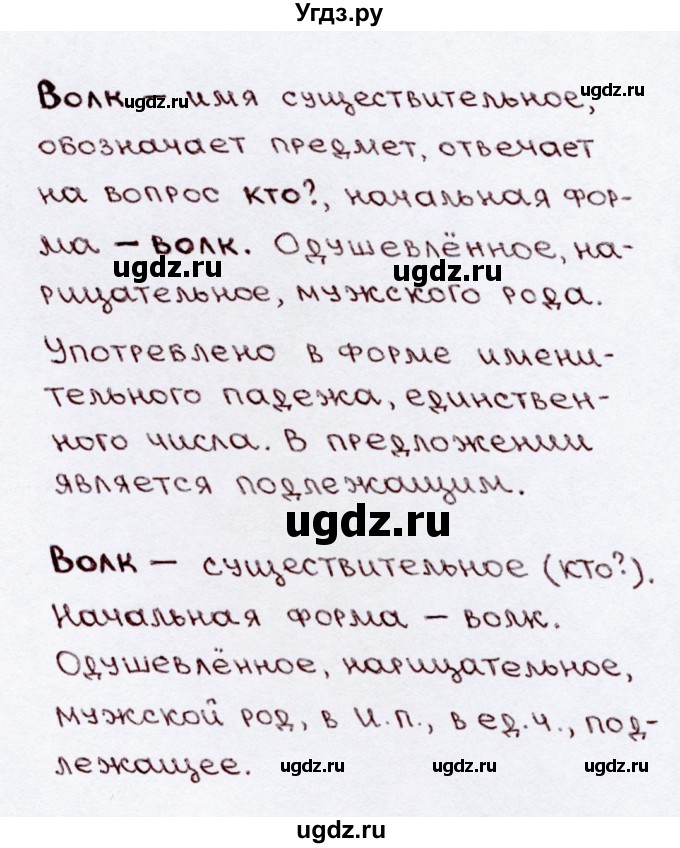 Угдз.ру
Волк – имя существительное,
ugdz.ru
ugdz.ru
обозначает предмет, отвечает
на вопрос кто?, начальная фор-
ма – волк. Одушевлённое, на-
ugdz.ru ugdz.ru
рицательное, мужского рода.
Употреблено в форме имени-
тельного падежа, единствен-
ного числа. В предложении
является подлежащим.
ugdz.ru
Волк – существительное (кто?).
Начальная форма – волк.
Одушевлённое, нарицательное,
мужской род, в И.п., в ед.ч., под-
лежащее.
ugdz.ru ugdz.ru ugdz.ru
ugdz.ru